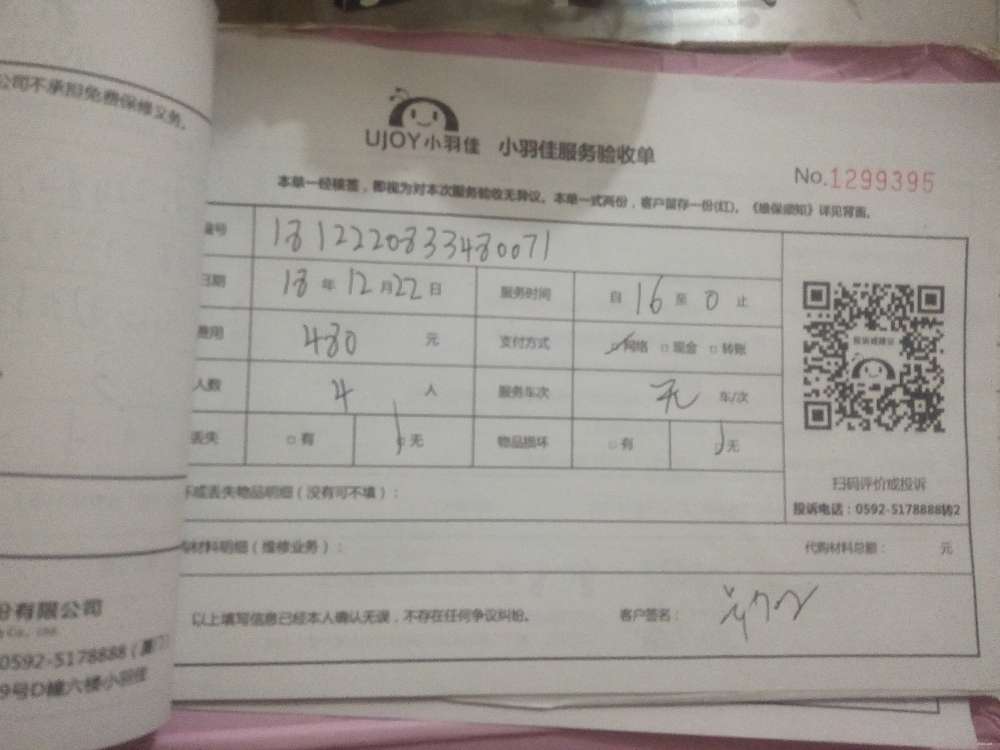 公司不承担免费保修义务。
UJOY小羽佳 小羽佳服务验收单
No.1299395
本单一经核签，即视为对本次服务验收无异议。本单一式两份，客户留存一份(红)。《维保须知》详见背面。
编号 181222083348 0071
日期 18年12月22日 服务时间 自16至0止
费用 480元 支付方式 ☑网络 □现金 □转账
人数 4人 服务车次 无 车/次
丢失 □有 ☑无 物品损坏 □有 ☑无
坏或丢失物品明细（没有可不填）：
扫码评价或投诉
投诉电话：0592-5178888转2
购材料明细（维修业务）： 代购材料总额： 元
以上填写信息已经本人确认无误，不存在任何争议纠纷。 客户签名：
份有限公司
Co., Ltd
0592-5178888（厦门）
9号D幢六楼小羽佳